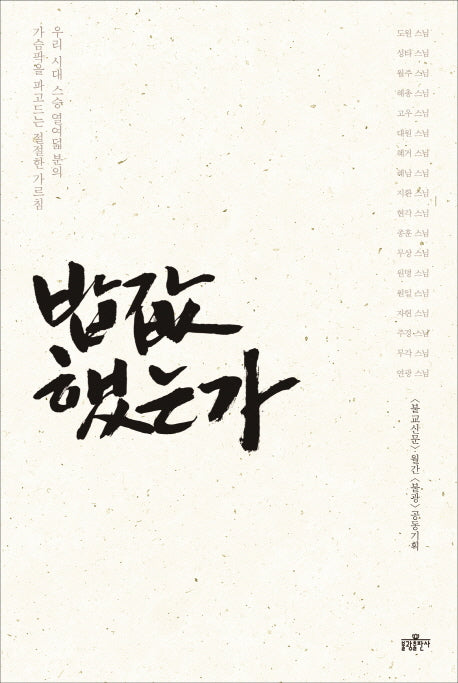 우리 시대 스승 열여덟 분의
가슴팍을 파고드는 절절한 가르침
도원 스님
성타 스님
월주 스님
혜총 스님
고우 스님
대원 스님
혜거 스님
해남 스님
지환 스님
현각 스님
종훈 스님
무상 스님
원명 스님
원일 스님
자현 스님
주경 스님
무각 스님
연광 스님
밥값
했는가
〈불교신문〉·월간 〈불광〉 공동기획
불광출판사